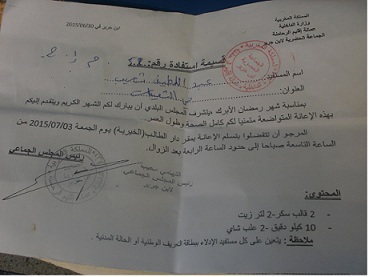 المملكة المغربية
وزارة الداخلية
عمالة إقليم الرحامنة
الجماعة الحضرية لابن جرير
ابن جرير في 2015/06/30
قسيمة استفادة رقم:
اسم المستفيد: عبد اللطيف
العنوان:
بمناسبة شهر رمضان الأبرك يتشرف المجلس البلدي أن يبارك لكم الشهر الكريم ويتقدم إليكم
بهذه الإعانة المتواضعة متمنيا لكم كامل الصحة وطول العمر.
المرجو أن تتفضلوا بتسلم الإعانة بمقر دار الطالب (الخيرية) يوم الجمعة 2015/07/03 من
الساعة التاسعة صباحا إلى حدود الساعة الرابعة بعد الزوال.
رئيس المجلس الجماعي
رئيس المجلس الجماعي
لابن جرير
المحتوى:
- 2 قالب سكر -2 لتر زيت
- 10 كيلو دقيق -2 علب شاي
ملاحظة : يتعين على كل مستفيد الإدلاء ببطاقة التعريف الوطنية أو الحالة المدنية .